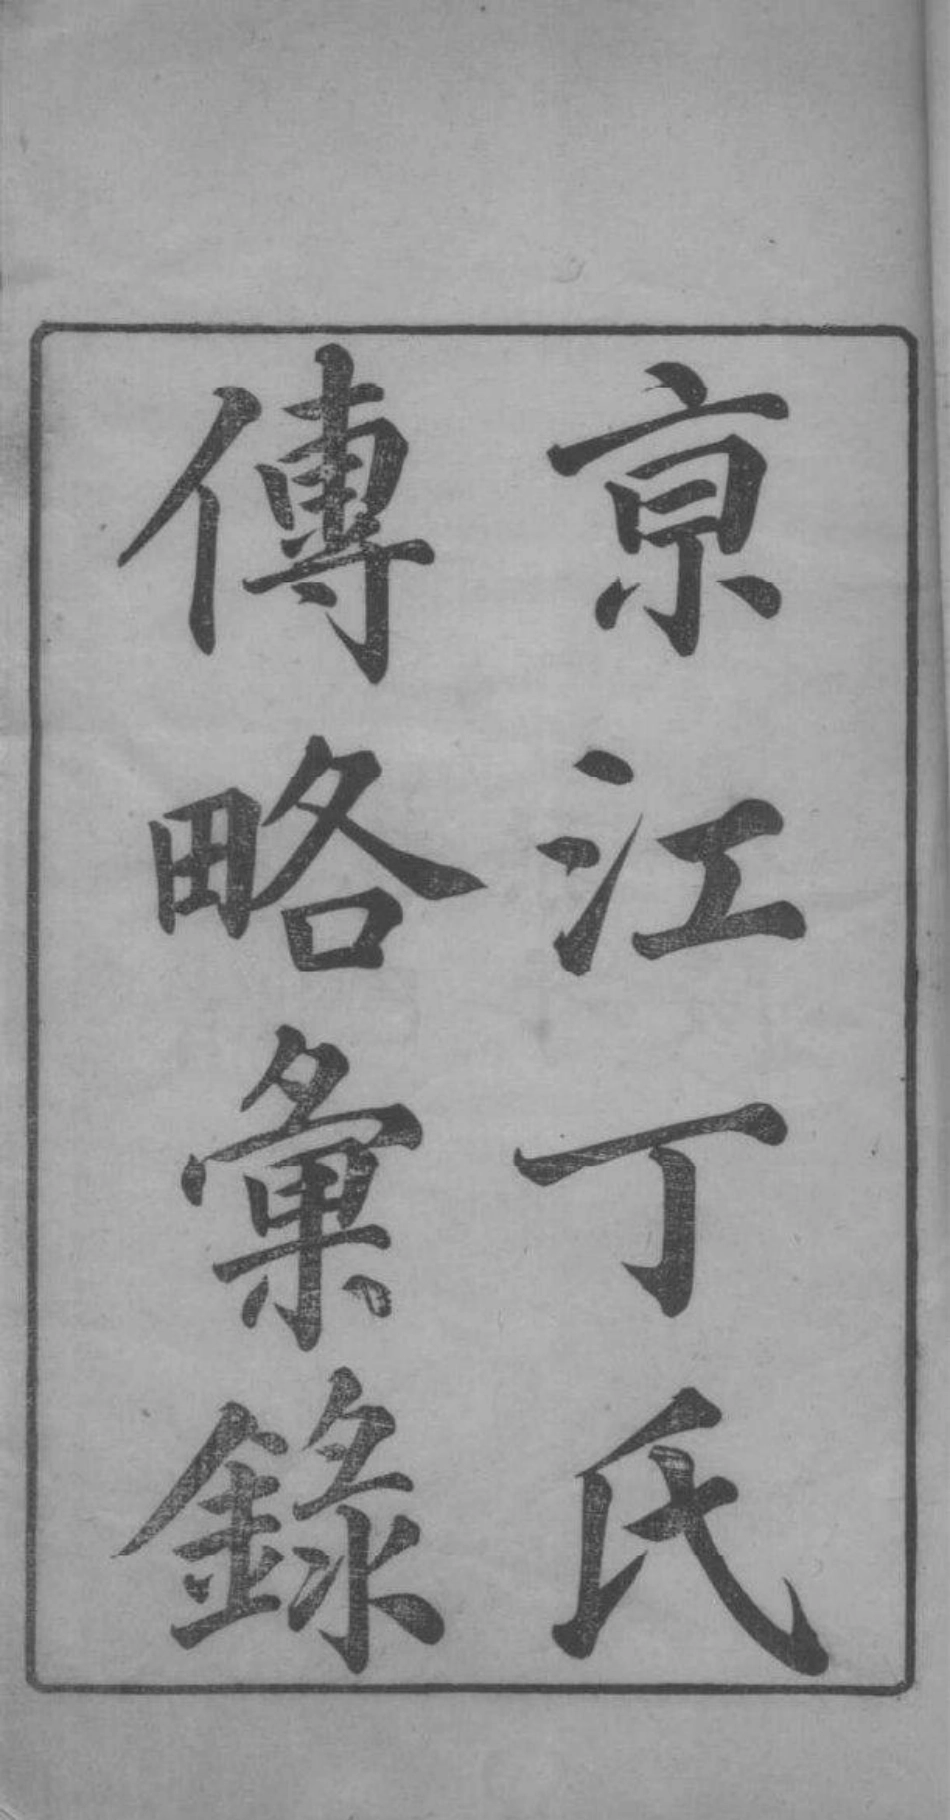 京江丁氏
傳略彙錄